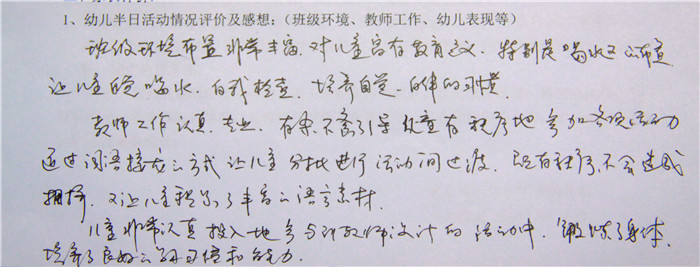 1、幼儿半日活动情况评价及感想：（班级环境、教师工作、幼儿表现等）
班级环境布置非常丰富，对儿童富有教育意义，特别是喝水区的布置
让儿童自觉喝水，自我检查，培养自觉、自律的习惯。
教师工作认真、专业，有条不紊引导儿童有程序地参加各项活动
通过词语接龙的方式让儿童分批进行活动间过渡，既有秩序，不会造成
拥挤，又让儿童积累了丰富的语言素材。
儿童非常认真投入地参与到教师设计的活动中，锻炼了身体，
培养了良好的学习习惯和能力。